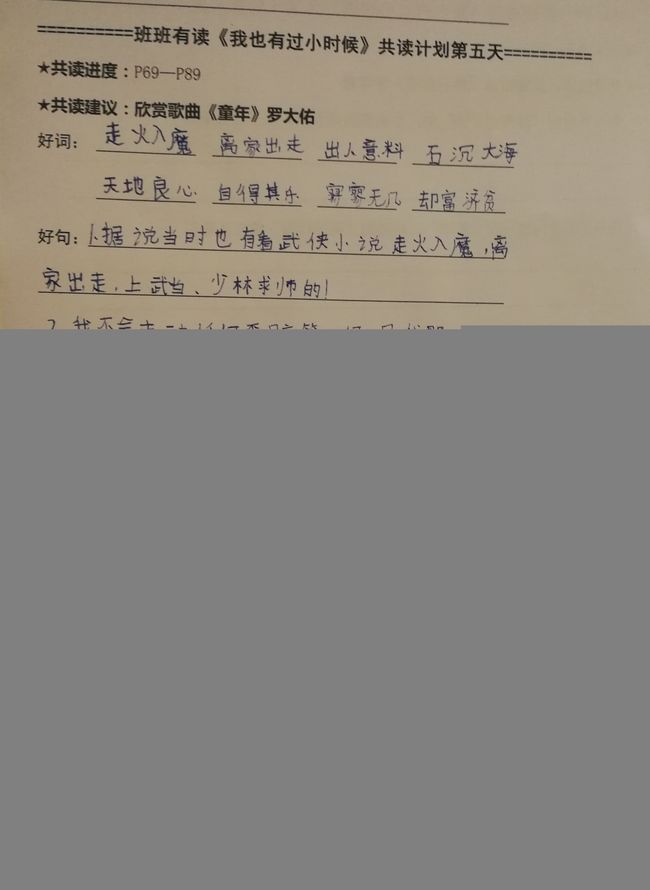 ==========班班有读《我也有过小时候》共读计划第五天==========
★共读进度：P69—P89
★共读建议：欣赏歌曲《童年》罗大佑
好词： 走火入魔 离家出走 出人意料 石沉大海
天地良心 自得其乐 寥寥无几 却富济贫
好句：1、据说当时也有看武侠小说走火入魔，离
家出走，上武当、少林求师的！